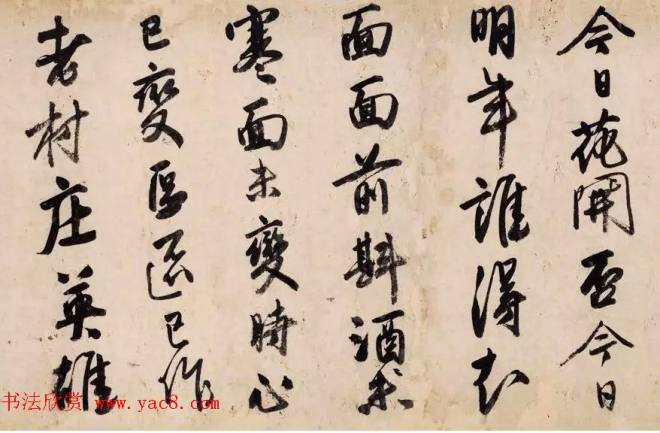 今日花開否今日
明年誰得知
面面前斟酒未
寒面未變時心
已變區區已作
老村庄英雄
书法欣赏 www.yac8.com